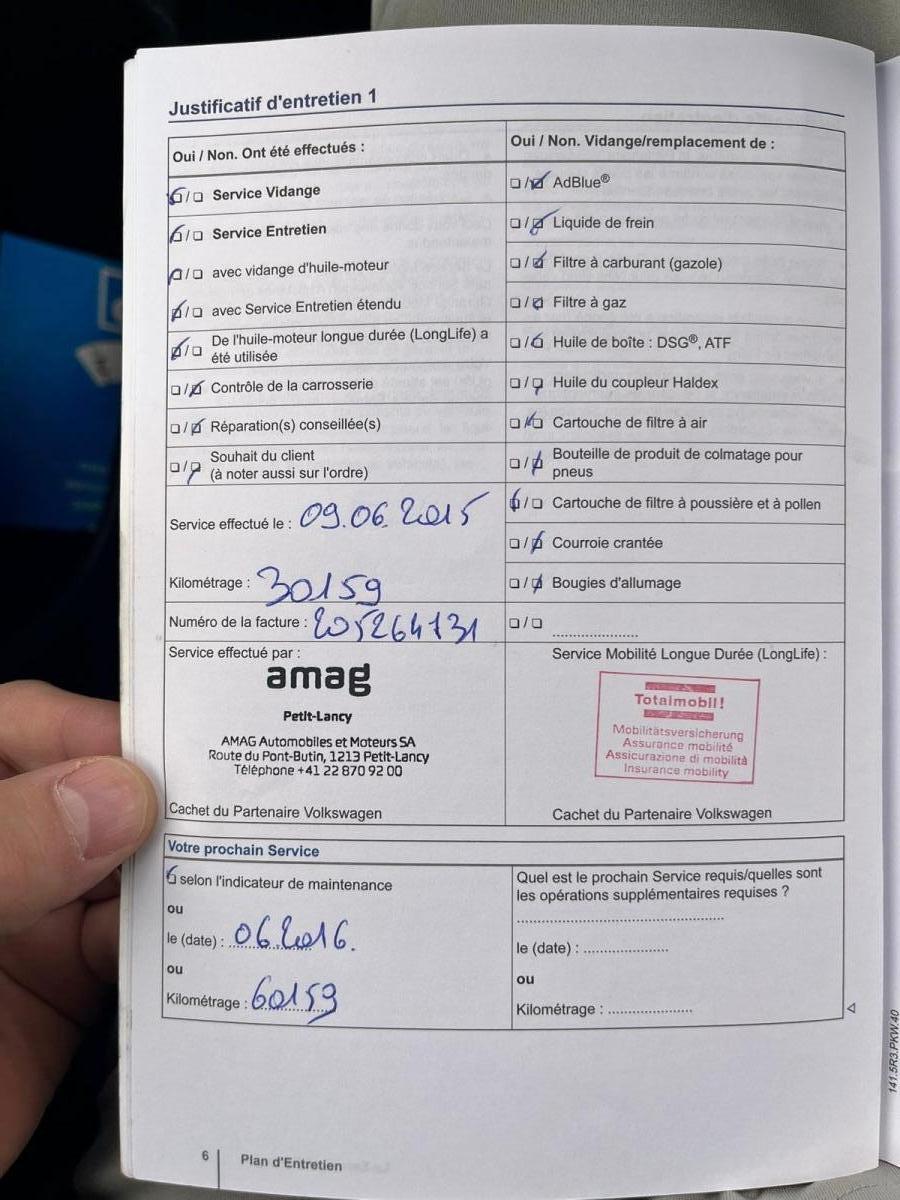 Justificatif d'entretien 1
Oui / Non. Ont été effectués :
☑/☐ Service Vidange
☑/☐ Service Entretien
☑/☐ avec vidange d'huile-moteur
☑/☐ avec Service Entretien étendu
☑/☐ De l'huile-moteur longue durée (LongLife) a
été utilisée
☐/☑ Contrôle de la carrosserie
☐/☑ Réparation(s) conseillée(s)
☐/☑ Souhait du client
(à noter aussi sur l'ordre)
Service effectué le : 09.06.2015
Kilométrage : 30159
Numéro de la facture : 205264731
Service effectué par :
amag
Petit-Lancy
AMAG Automobiles et Moteurs SA
Route du Pont-Butin, 1213 Petit-Lancy
Téléphone +41 22 870 92 00
Cachet du Partenaire Volkswagen
Oui / Non. Vidange/remplacement de :
☐/☑ AdBlue®
☐/☑ Liquide de frein
☐/☑ Filtre à carburant (gazole)
☐/☑ Filtre à gaz
☐/☑ Huile de boîte : DSG®, ATF
☐/☑ Huile du coupleur Haldex
☐/☑ Cartouche de filtre à air
☐/☑ Bouteille de produit de colmatage pour
pneus
☑/☐ Cartouche de filtre à poussière et à pollen
☐/☑ Courroie crantée
☐/☑ Bougies d'allumage
☐/☐ ....................
Service Mobilité Longue Durée (LongLife) :
Totalmobil!
Mobilitätsversicherung
Assurance mobilité
Assicurazione di mobilità
Insurance mobility
Cachet du Partenaire Volkswagen
Votre prochain Service
☑ selon l'indicateur de maintenance
ou
le (date) : 06.2016.
ou
Kilométrage : 60159
Quel est le prochain Service requis/quelles sont
les opérations supplémentaires requises ?
..................................................
le (date) : ....................
ou
Kilométrage : ....................
141.5R3.PKW.40
6 Plan d'Entretien